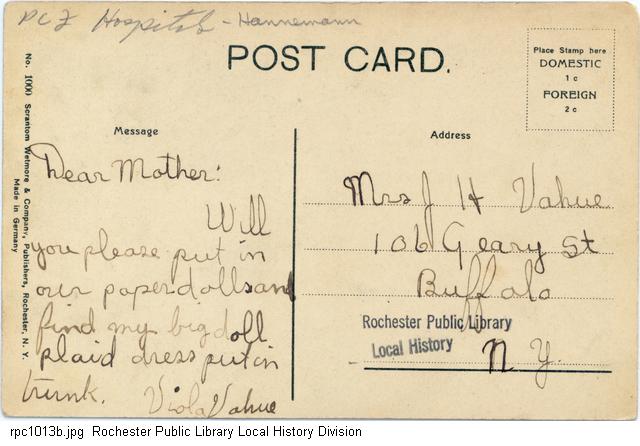 PCF Hospitals - Hannemann
POST CARD.
Place Stamp here
DOMESTIC
1c
FOREIGN
2c
No. 1000 Scrantom Wetmore & Company, Publishers, Rochester, N. Y.
Made in Germany
Message
Dear Mother:
Will
you please put in
our paper dolls and
find my big doll
plaid dress put in
trunk.
Viola Vahue
Address
Mrs J H Vahue
106 Geary St
Buffalo
N Y.
Rochester Public Library
Local History
rpc1013b.jpg Rochester Public Library Local History Division